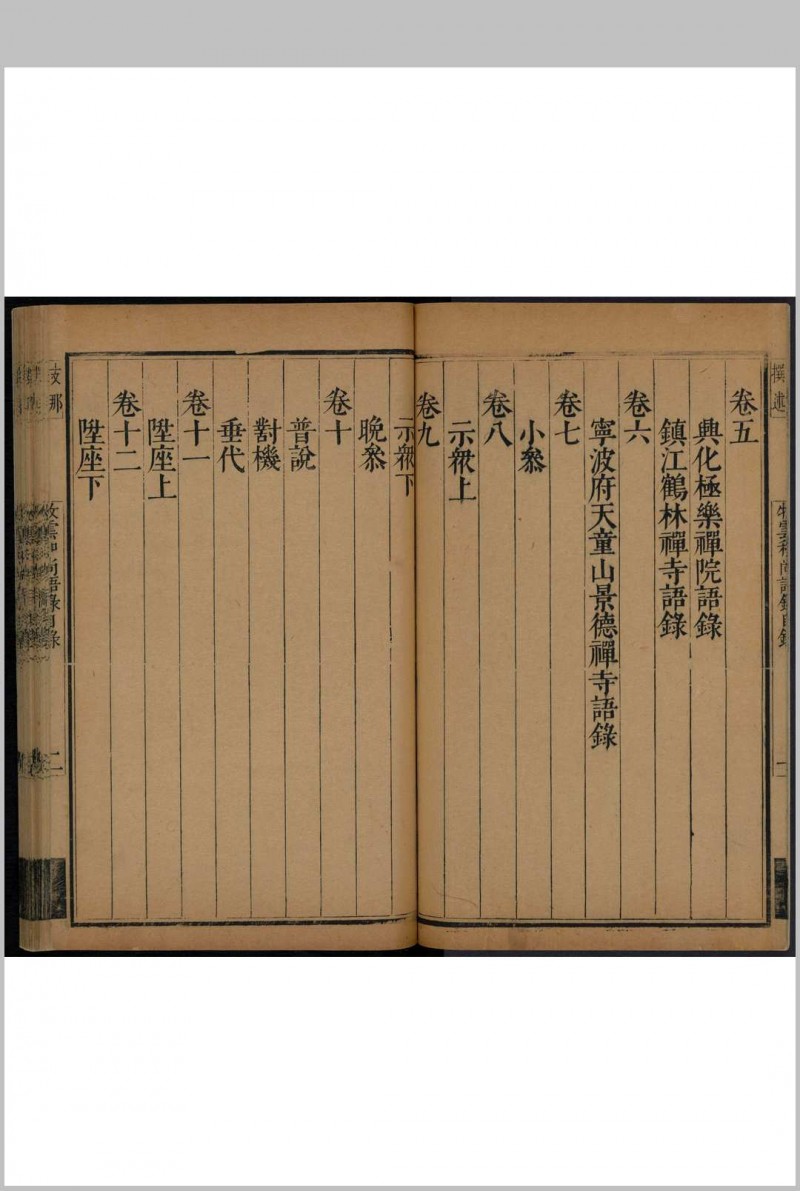 卷五
興化極樂禪院語錄
鎮江鶴林禪寺語錄
卷六
寧波府天童山景德禪寺語錄
卷七
小叅
卷八
示衆上
卷九
示衆下
晩叅
卷十
普說
對機
垂代
卷十一
陞座上
卷十二
陞座下
支那
牧雲和尚語錄目錄
二